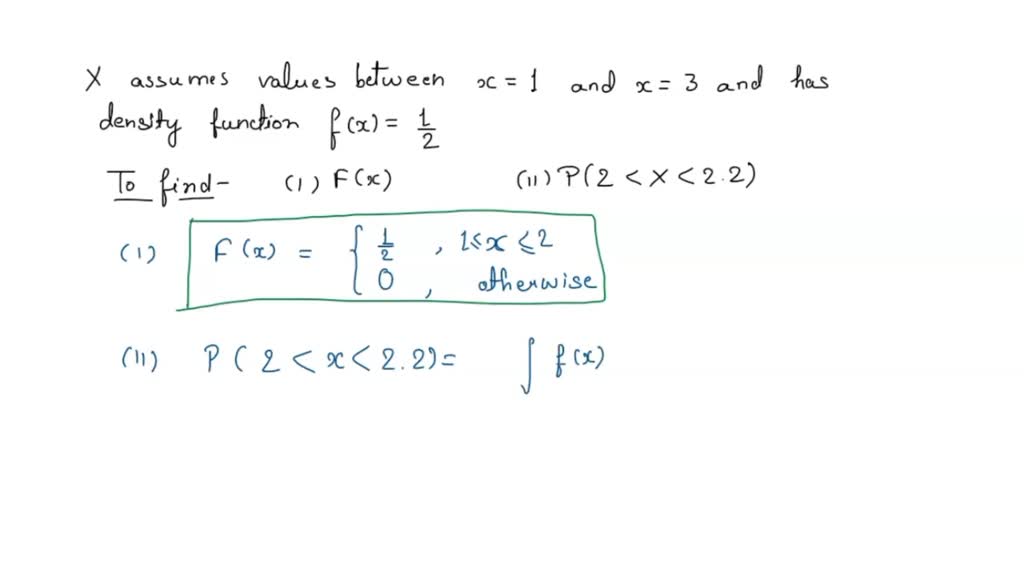 X assumes values between x = 1 and x = 3 and has
density function f(x) = 1/2
To find- (1) F(x) (11) P(2 < X < 2.2)
(1) F(x) = { 1/2 , 1≤x ≤2
0 , otherwise
(11) P(2 < x < 2.2) = ∫ f(x)